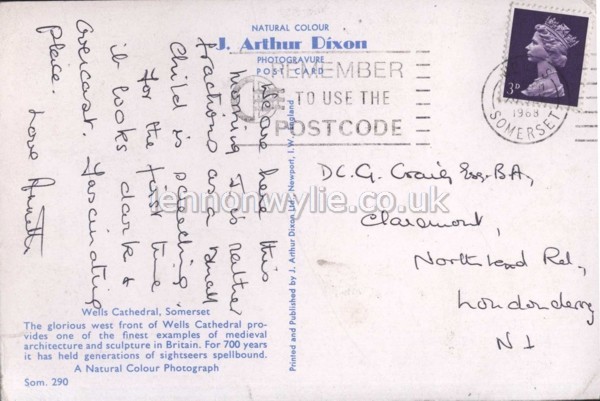 NATURAL COLOUR
J. Arthur Dixon
PHOTOGRAVURE
POST CARD
REMEMBER
TO USE THE
POSTCODE
3D
1968
SOMERSET
We are here this
morning. J is rather
fractious as a small
child is screeching.
for the first time
it looks dark &
overcast. Fascinating
place.
Love Annette
D.C.G. Craig Esq. B.A,
Claremont,
Northland Rd.,
Londonderry
N I
lennonwylie.co.uk
Printed and Published by J. Arthur Dixon Ltd., Newport, I.W. England
Wells Cathedral, Somerset
The glorious west front of Wells Cathedral pro-
vides one of the finest examples of medieval
architecture and sculpture in Britain. For 700 years
it has held generations of sightseers spellbound.
A Natural Colour Photograph
Som. 290